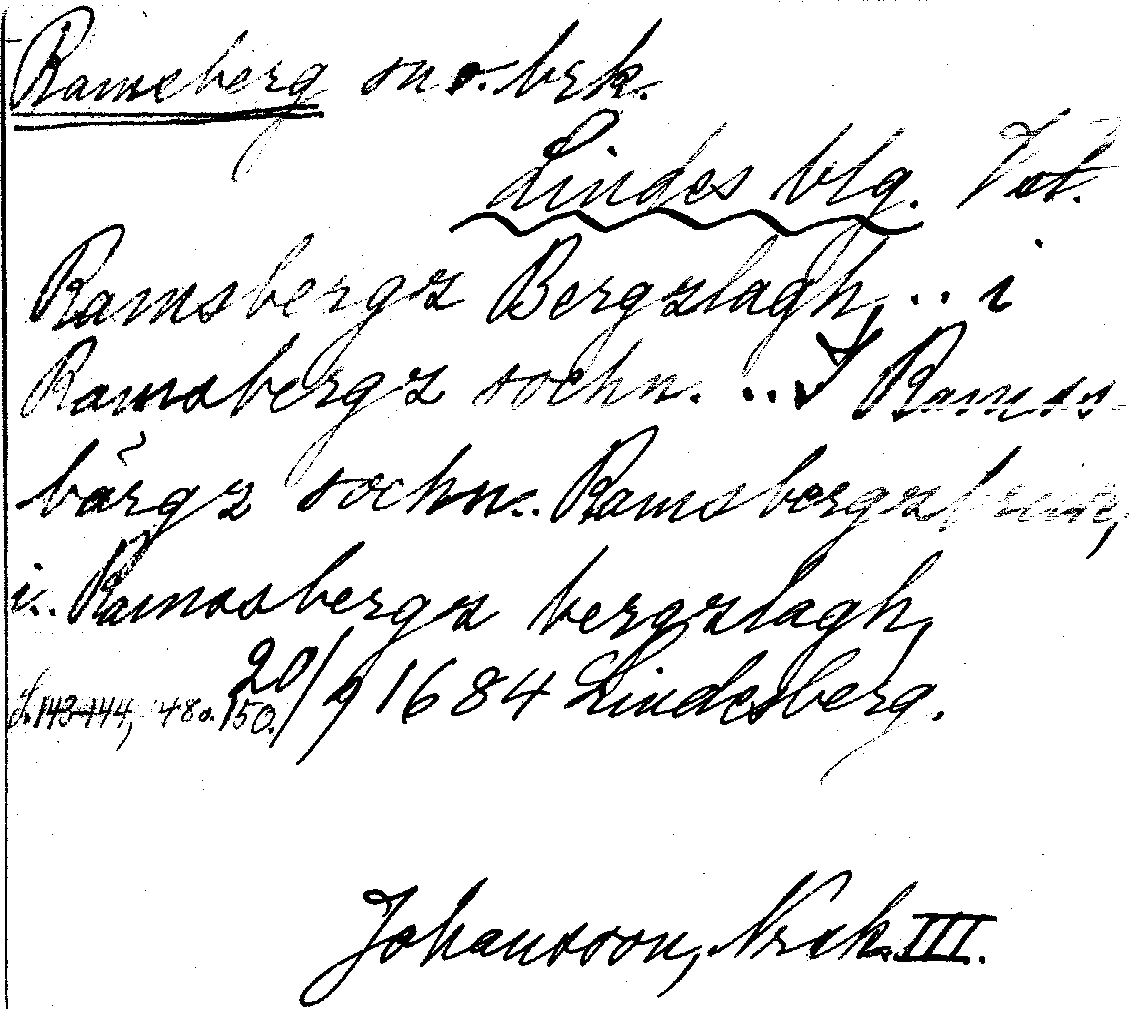 Ramsberg sn o. brk.
Lindes blg. Vstm.
Ramsbergz Bergzlagh, .. i
Ramsbergz sochn. .. I Ramss-
bärgz sochn.. Ramsbergzbruk,
i.. Ramssbergz bergzlagh,
s. 143-144, 148 o. 150. 20/9 1684 Lindesberg.
Johansson, Nrck. III.